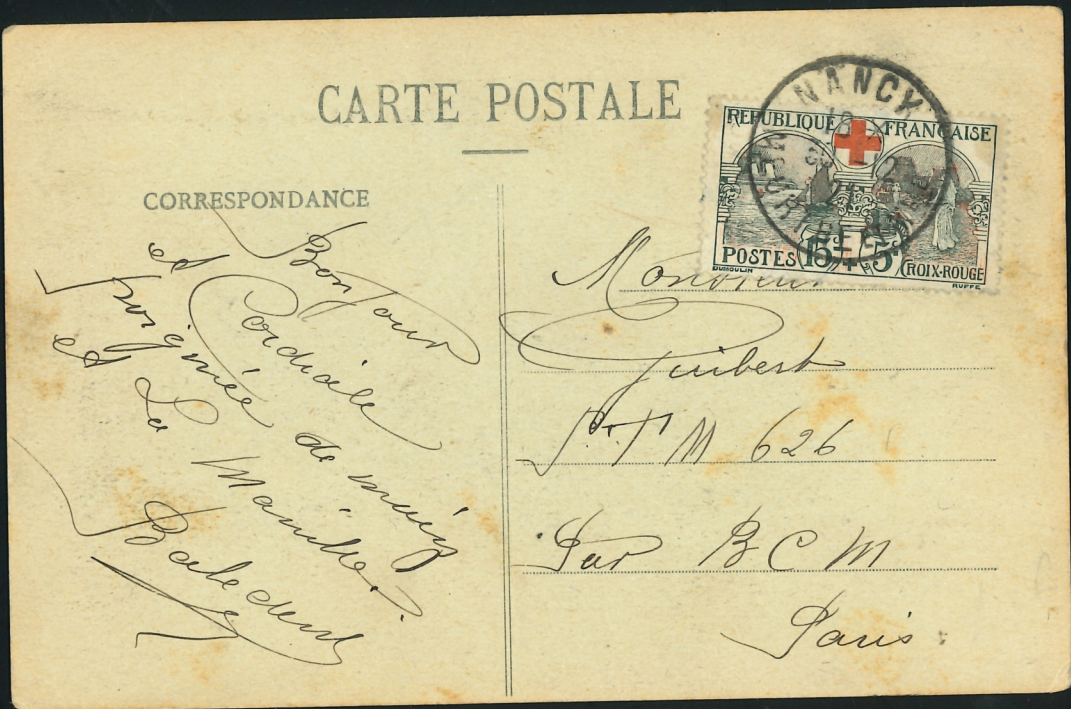 CARTE POSTALE
CORRESPONDANCE
Bonjour
et Cordiale
poignée de main
et La Manille.
Baledent
NANCY
REPUBLIQUE FRANÇAISE
POSTES 15c + 5c CROIX-ROUGE
DUMOULIN RUFFE
Monsieur
Guibert
S.T M 626
Par B C M
Paris.